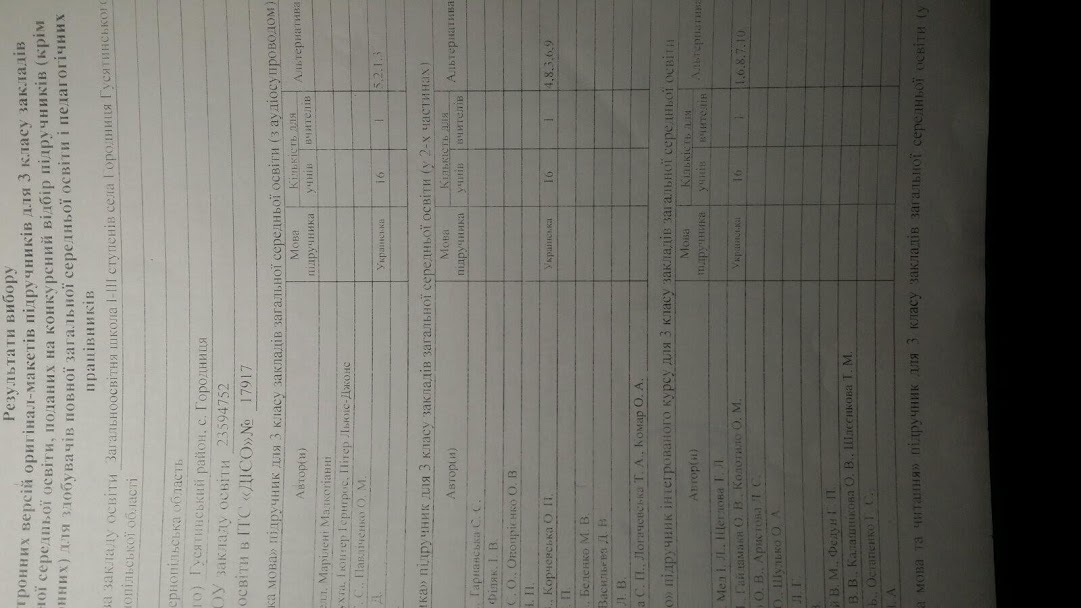 Результати вибору
тронних версій оригінал-макетів підручників для 3 класу закладів
ної середньої освіти, поданих на конкурсний відбір підручників (крім
нних) для здобувачів повної загальної середньої освіти і педагогічних
працівників
ва закладу освіти Загальноосвітня школа I-III ступенів села Городниця Гусятинського
нопільської області
ернопільська область
Гусятинський район, с. Городниця
ОУ закладу освіти 23594752
освіти в ПС «ДІСО»№ 17917
ка мова» підручник для 3 класу закладів загальної середньої освіти (з аудіосупроводом)
Автор(и) Мова підручника Кількість для учнів вчителів Альтернатива
Марілені Малкогіанні
Гюнтер Гернгрос, Пітер Льюіс-Джонс
С., Павліченко О. М.
Д. Українська 16 1 5,2,1,3
ика» підручник для 3 класу закладів загальної середньої освіти (у 2-х частинах)
Автор(и) Мова підручника Кількість для учнів вчителів Альтернатива
Тарнавська С. С.
Філяк І. В.
С. О., Онопрієнко О. В.
І. П.
, Корчевська О. П. Українська 16 1 4,8,3,6,9
П.
, Беденко М. В.
Васильєва Д. В.
Л. В.
а С. П., Логачевська Т. А., Комар О. А.
о» підручник інтегрованого курсу для 3 класу закладів загальної середньої освіти
Автор(и) Мова підручника Кількість для учнів вчителів Альтернатива
Щеглова Т. Л.
Гайдамака О. В., Колотило О. М. Українська 16 1 1,6,8,7,10
О. В., Аристова Л. С.
О., Шулько О. А.
Л. Г.
В. М., Федун Г. П.
В. В., Калашнікова О. В., Підсєнкова Т. М.
, Остапенко Г. С.
А.
а мова та читання» підручник для 3 класу закладів загальної середньої освіти (у